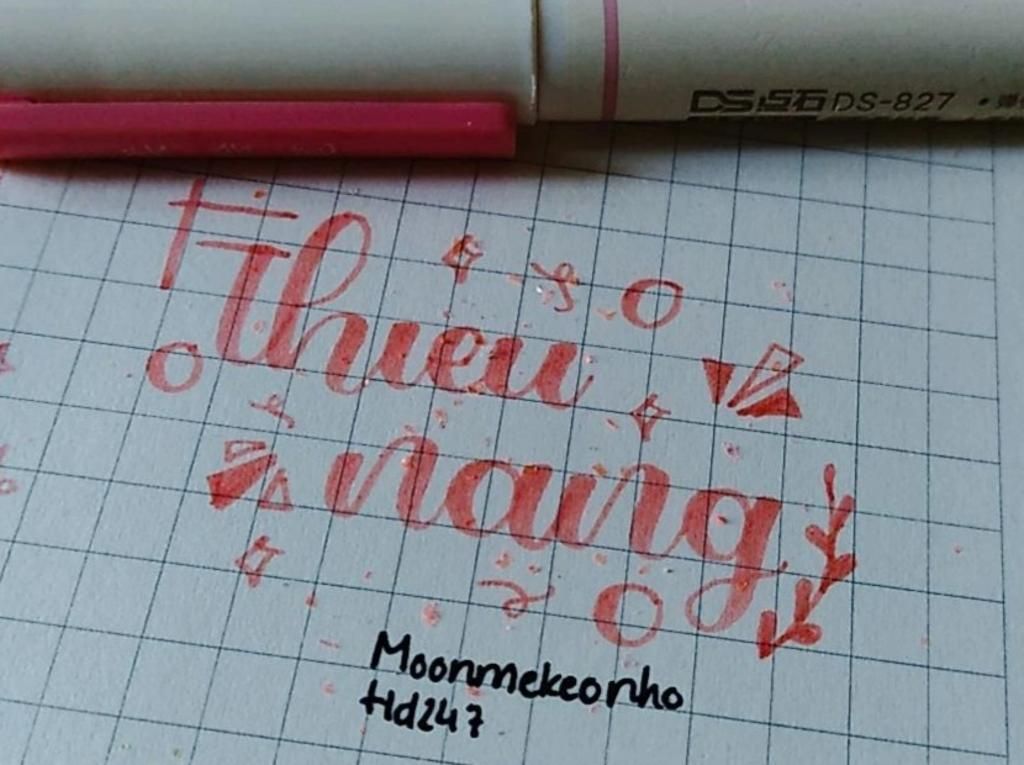 DS点石 DS-827
thieu
nang
Moonmekeonho
Hd247